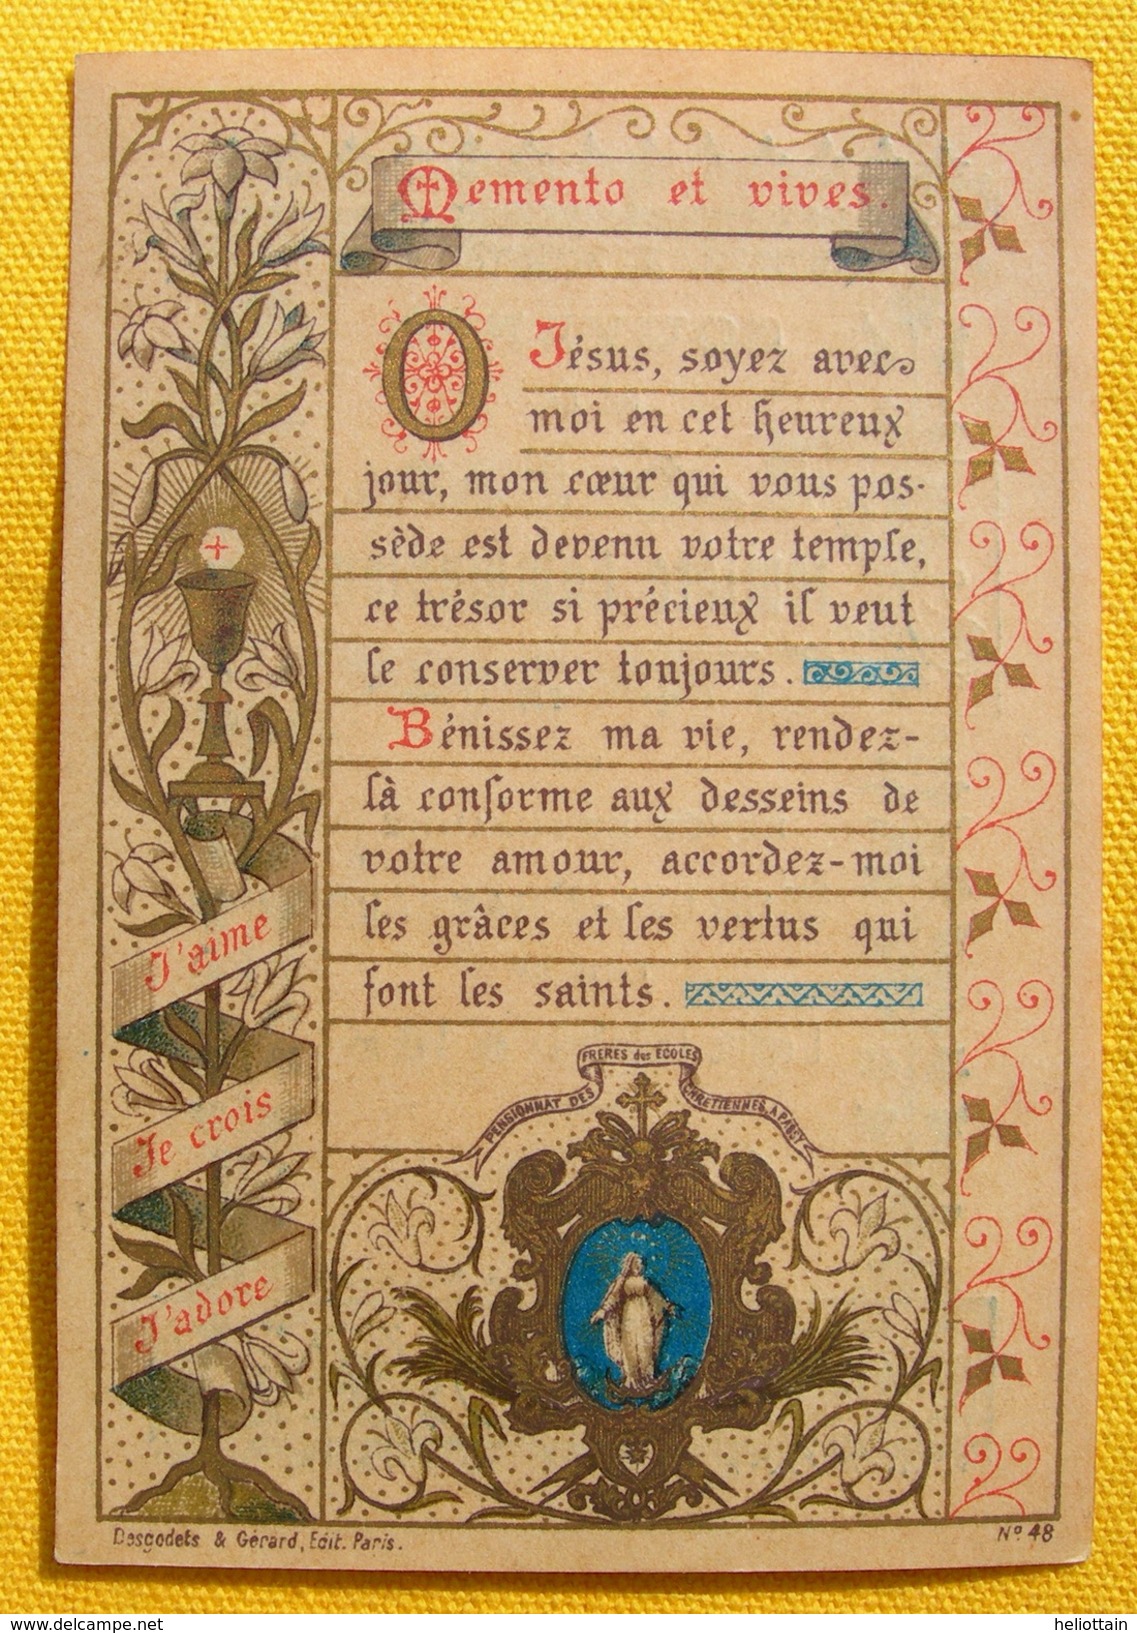 Memento et vives.
O Jésus, soyez avec
moi en cet heureux
jour, mon cœur qui vous pos-
sède est devenu votre temple,
ce trésor si précieux il veut
le conserver toujours.
Bénissez ma vie, rendez-
là conforme aux desseins de
votre amour, accordez-moi
les grâces et les vertus qui
font les saints.
J'aime
Je crois
J'adore
PENSIONNAT DES FRERES des ECOLES CHRETIENNES A PASSY
Desgodets & Gérard, Edit. Paris.
No. 48
© delcampe.net
heliottain